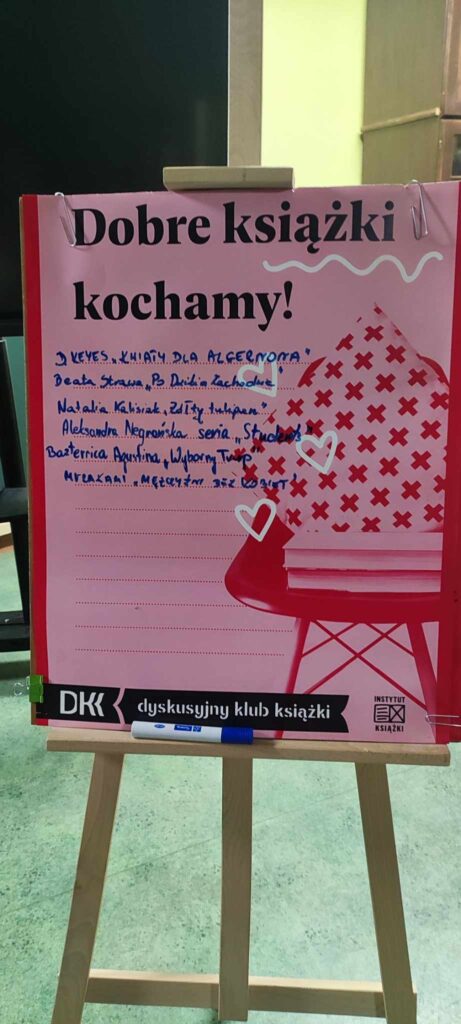 Dobre książki
kochamy!
D KEYES „KWIATY DLA ALGERNONA"
Beata Strawa „Po Dzikim Zachodzie"
Natalia Kalisiak „Żółty tulipan"
Aleksandra Negrońska seria „Students"
Bazterrica Agustina „Wyborny Trup"
MURAKAMI „MĘŻCZYŹNI BEZ KOBIET"
DKK dyskusyjny klub książki
INSTYTUT
KSIĄŻKI